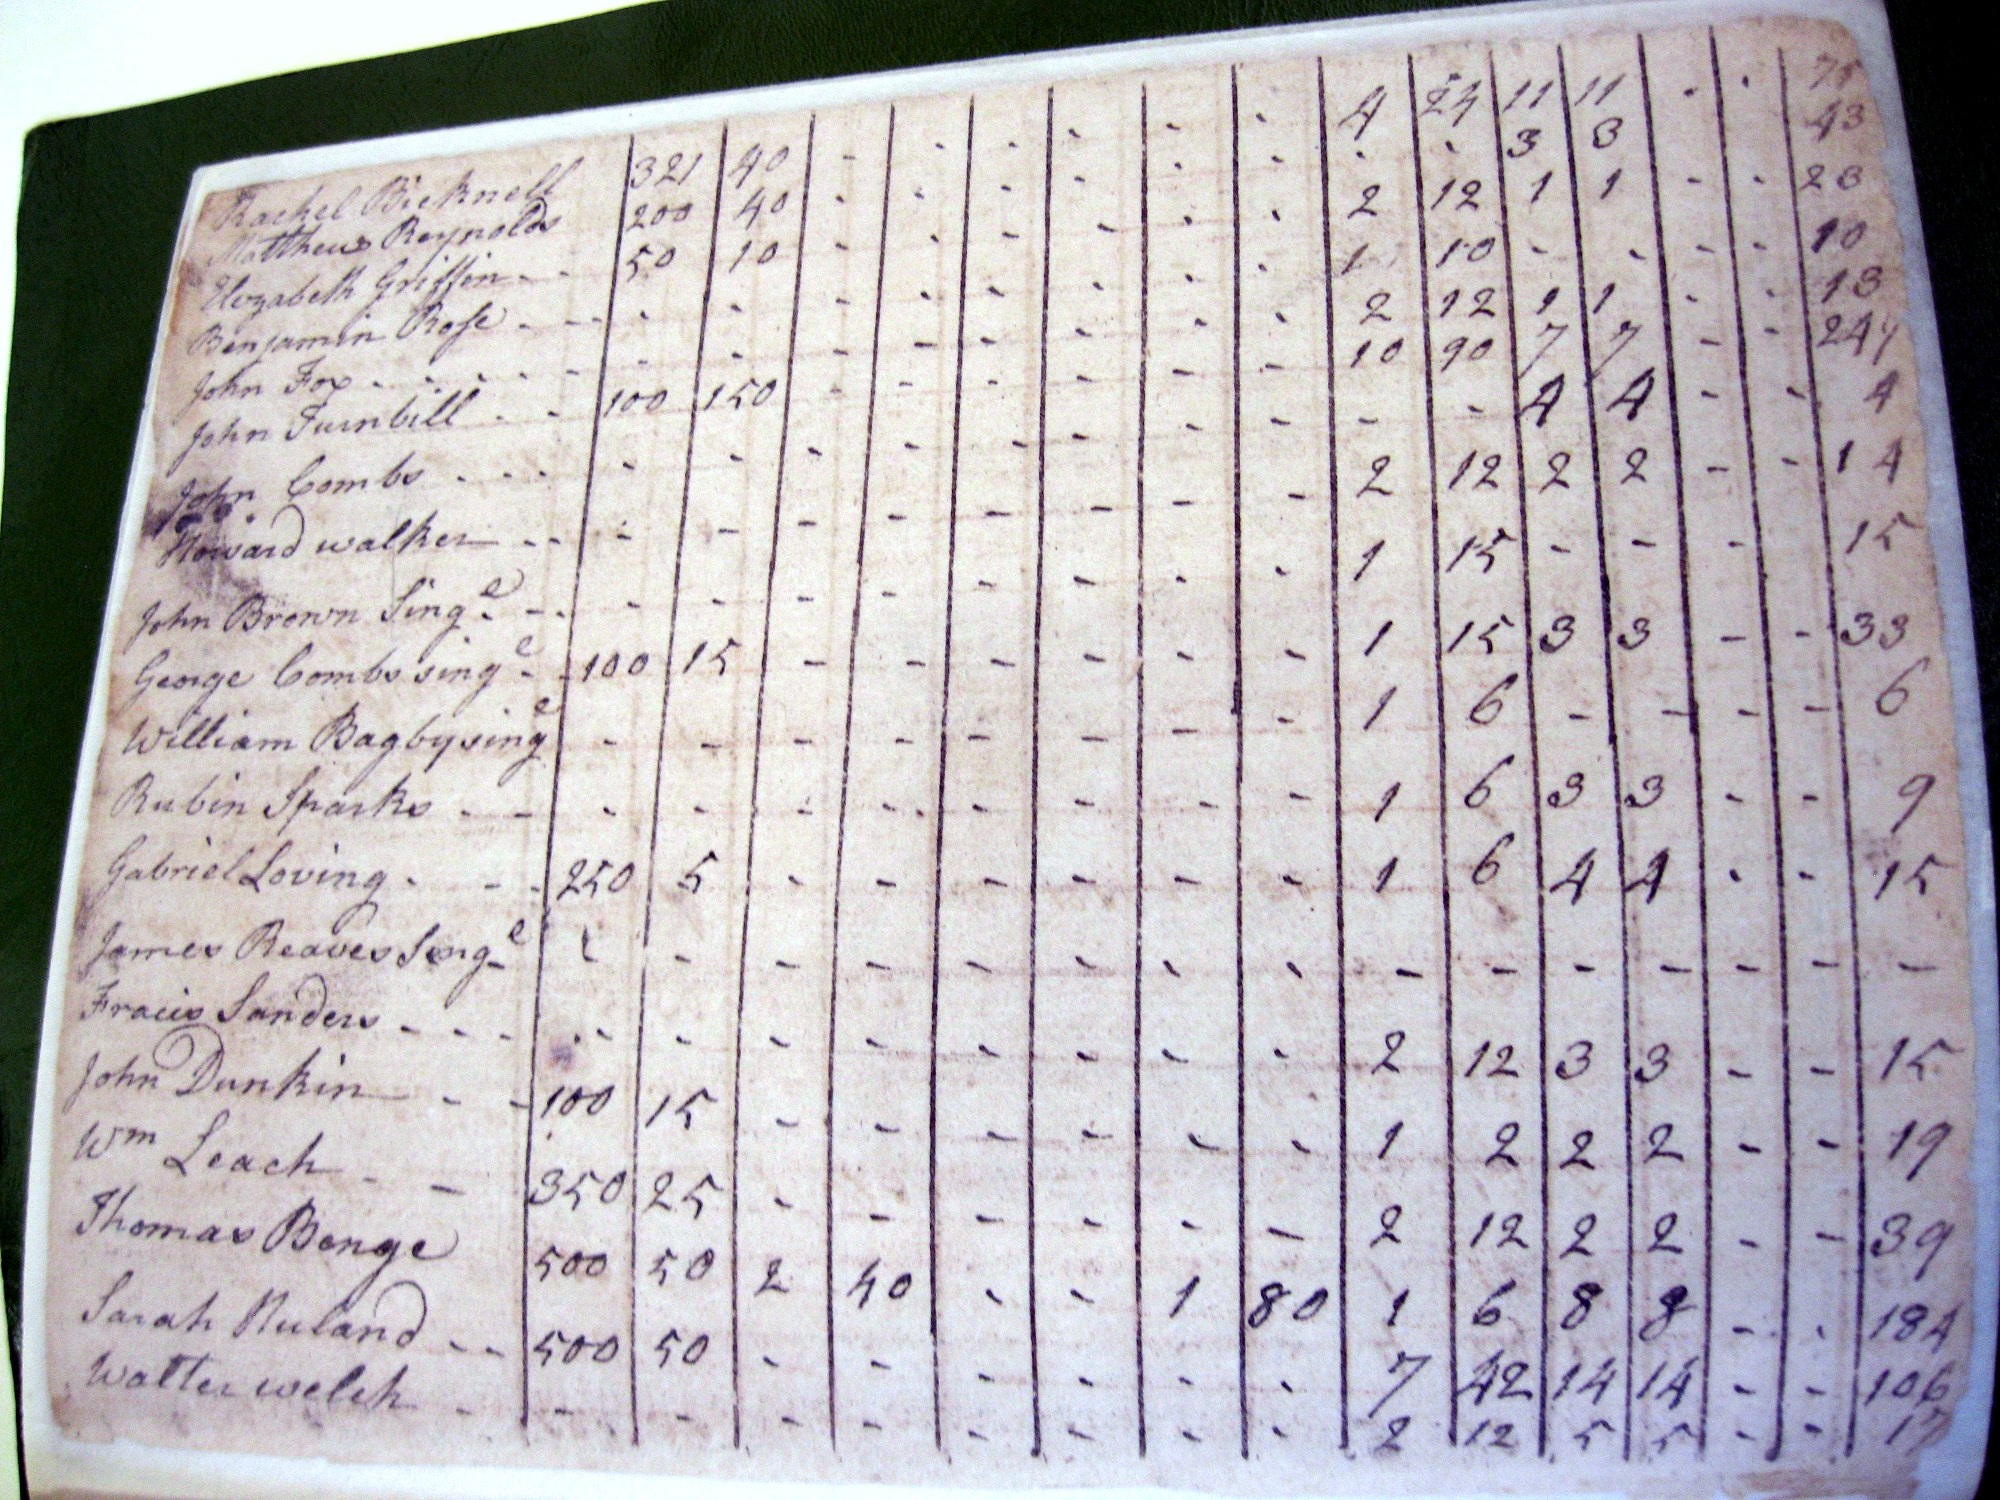 Rachel Bicknell 321 40 - - - - - - 4 24 11 11 - - 75
Matthew Reynolds 200 40 - - - - - - - - 3 3 - - 43
Elizabeth Griffin - - 50 10 - - - - - - 2 12 1 1 - - 23
Benjamin Rose - - - - - - - - - - - 1 10 - - - - 10
John Fox - - - - - - - - - - - - - 2 12 1 1 - - 13
John Turnbill - - 100 150 - - - - - - 10 90 7 7 - - 247
John Combs - - - - - - - - - - - - - 4 4 - - 4
Howard walker - - - - - - - - - - 2 12 2 2 - - 14
John Brown Singe - - - - - - - - - - 1 15 - - - 15
George Combs singe - - 100 15 - - - - - - 1 15 3 3 - - 33
William Bagby singe - - - - - - - - 1 6 - - - - 6
Rubin Sparks - - - - - - - - - - 1 6 3 3 - - 9
Gabriel Loving - - - 250 5 - - - - - - 1 6 4 4 - - 15
James Reaves Singe - - - - - - - - - - - - - - -
Fracis Sanders - - - - - - - - - - - - 2 12 3 3 - - 15
John Dunkin - - 100 15 - - - - - - 1 2 2 2 - - 19
Wm Leach - - 350 25 - - - - - - 2 12 2 2 - - 39
Thomas Benge 500 50 2 40 - - 1 80 1 6 8 8 - - 184
Sarah Nuland - - 500 50 - - - - - - 7 42 14 14 - - 106
Walter welch - - - - - - - - - 2 12 5 5 - - 17